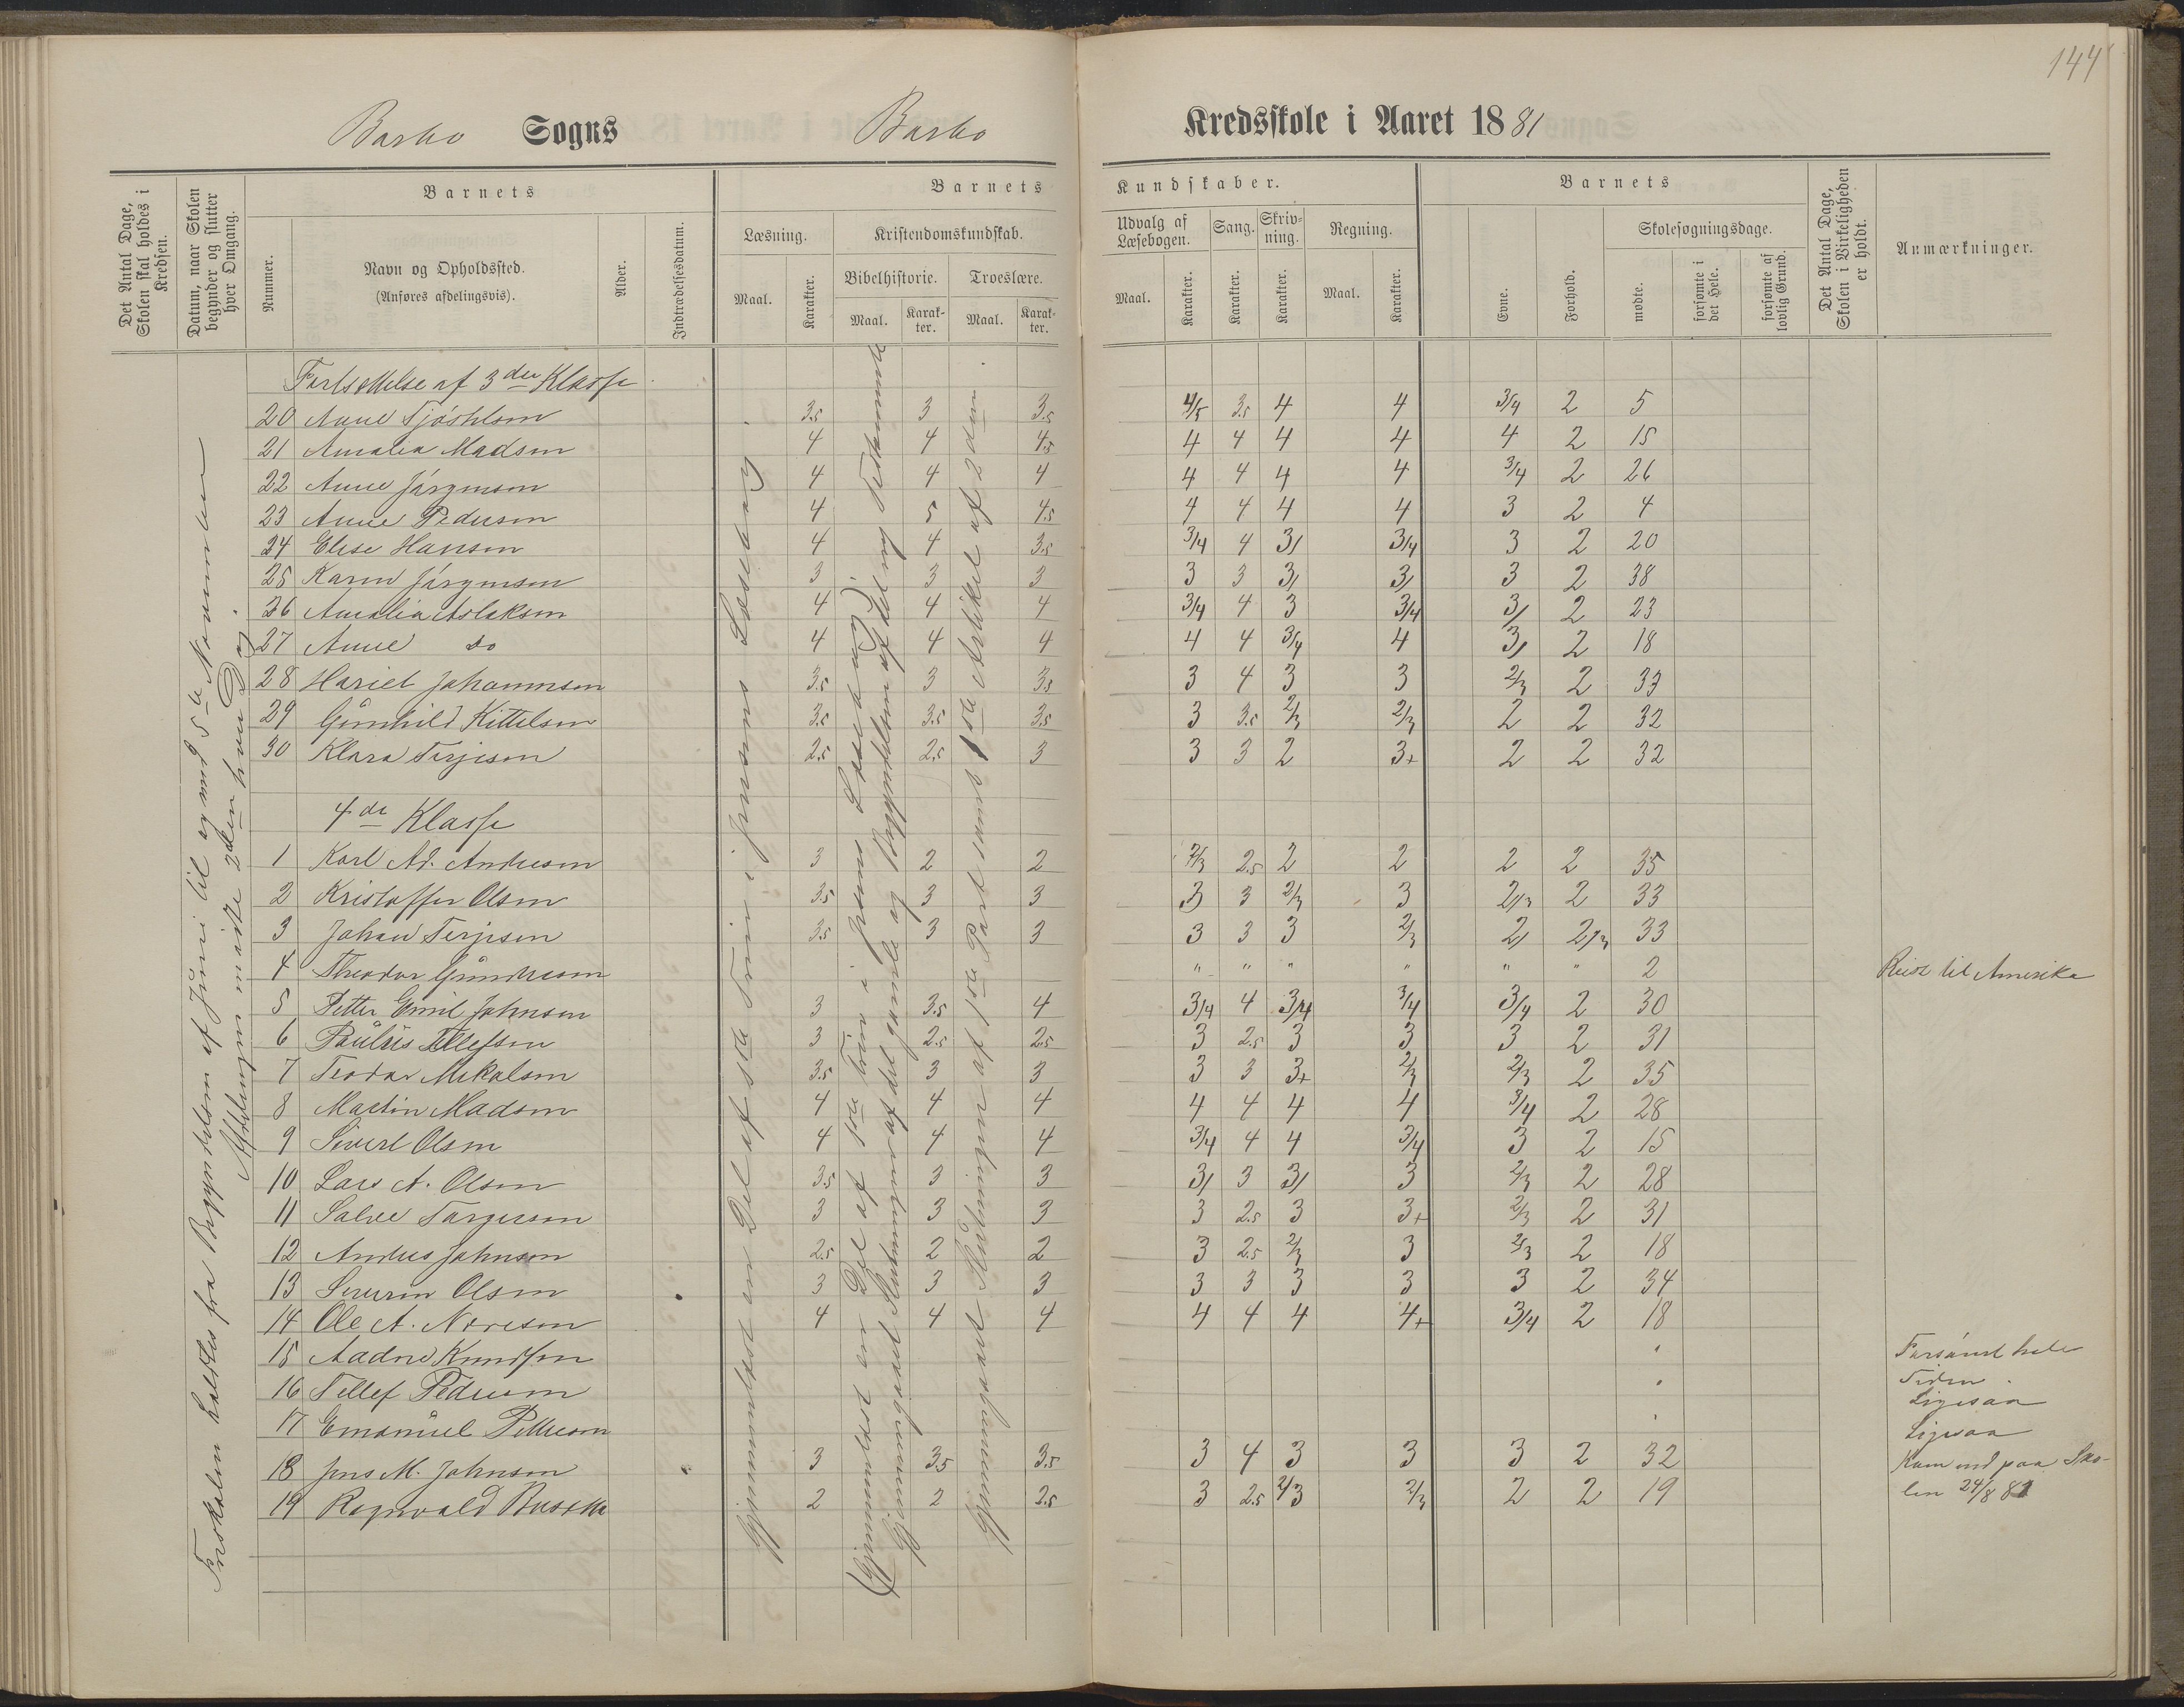 144
Barbo Sogns Barbo Kredsskole i Aaret 1881
Det Antal Dage, Skolen skal holdes i Kredsen.
Datum, naar Skolen begynder og slutter hver Omgang.
Nummer.
Barnets
Navn og Opholdssted.
(Anføres afdelingsvis).
Alder.
Indtrædelsesdatum.
Barnets Kundskaber.
Læsning.
Maal. Karakter.
Kristendomskundskab.
Bibelhistorie. Troeslære.
Maal. Karakter. Maal. Karakter.
Udvalg af Læsebogen. Sang. Skrivning. Regning.
Maal. Karakter. Karakter. Karakter. Maal. Karakter.
Barnets
Evne. Forhold.
Skolesøgningsdage.
mødte. forsømte i det Hele. forsømte af lovlig Grund.
Det Antal Dage, Skolen i Virkeligheden er holdt.
Anmærkninger.
Friskolen holdtes fra Begyndelsen af Juni til og med 5te November
Afdelingen mødte 2den hver Dag.
Gjennemlæst en Del af 1ste Trin i Jensens Læsebog.
(Gjennemlæst en Del af 1ste Trin i Jensens Læsebog)
Gjennemgaaet Slutningen af det gamle og Begyndelsen af det ny Testamente
Gjennemgaaet Slutningen af 1ste Part samt 1ste Artikel af 2den.
Fortsættelse af 3die Klasse
20 Anne 3.5 3 3.5 4/5 3.5 4 4 3/4 2 5
21 Amalia Madsen 4 4 4.5 4 4 4 4 4 2 15
22 Anne Jörgensen 4 4 4 4 4 4 4 3/4 2 26
23 Anne Pedersen 4 5 4.5 4 4 4 4 3 2 4
24 Elise Hansen 4 4 3.5 3/4 4 3/ 3/4 3 2 20
25 Karen Jörgensen 3 3 3 3 3 3/ 3/ 3 2 38
26 Amalia Aslaksen 4 4 4 3/4 4 3 3/4 3/ 2 23
27 Anne do 4 4 4 4 4 3/4 4 3/ 2 18
28 Hariet Johannesen 3.5 3 3.5 3 4 3 3 2/3 2 33
29 Gunhild Kittelsen 3.5 3.5 3.5 3 3.5 2/3 2/3 2 2 32
30 Klara Terjesen 2.5 2.5 3 3 3 2 3+ 2 2 32
4de Klasse
1 Karl Ad. Andersen 3 2 2 2/3 2.5 2 2 2 2 35
2 Kristoffer Olsen 3.5 3 3 3 3 2/3 3 2/3 2 33
3 Johan Terjesen 3.5 3 3 3 3 3 2/3 2/ 2/3 33
4 Theodor Gundersen " " " " " " 2 Reist til Amerika
5 Petter Emil Johnsen 3 3.5 4 3/4 4 3/4 3/4 3/4 2 30
6 Paulus Tellefsen 3 2.5 2.5 3 2.5 3 3 3 2 31
7 Teodor Mikalsen 3.5 3 3 3 3 3+ 2/3 2/3 2 35
8 Martin Madsen 4 4 4 4 4 4 4 3/4 2 28
9 Sivert Olsen 4 4 4 3/4 4 4 3/4 3 2 15
10 Lars A. Olsen 3.5 3 3 3/ 3 3/ 3 2/3 2 28
11 Salve Targersen 3 3 3 3 2.5 3 3+ 2/3 2 31
12 Andres Johnsen 2.5 2 2 3 2.5 2/3 3 2/3 2 18
13 Severin Olsen 3 3 3 3 3 3 3 3 2 34
14 Ole A. Noresen 4 4 4 4 4 4 4+ 3/4 2 18
15 Aadne Knudsen " Forsömt hele
16 Tellef Pedersen " Tiden.
Ligesaa
17 Emanuel Pettersen " Ligesaa
18 Jens M. Johnsen 3 3.5 3.5 3 4 3 3 3 2 32 Kom ind paa Sko-
19 Ragnvald 2 2 2.5 3 2.5 2/3 2/3 2 2 19 len 24/8 81